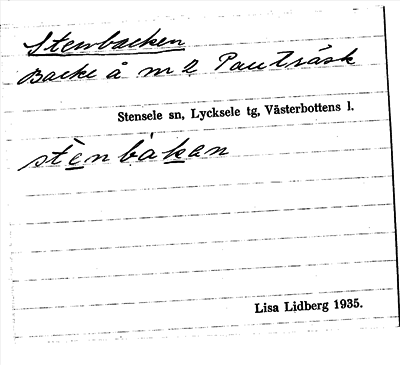 Stenbacken
Backe å m 2 Pauträsk
Stensele sn, Lycksele tg, Västerbottens l.
stènbàkan
Lisa Lidberg 1935.